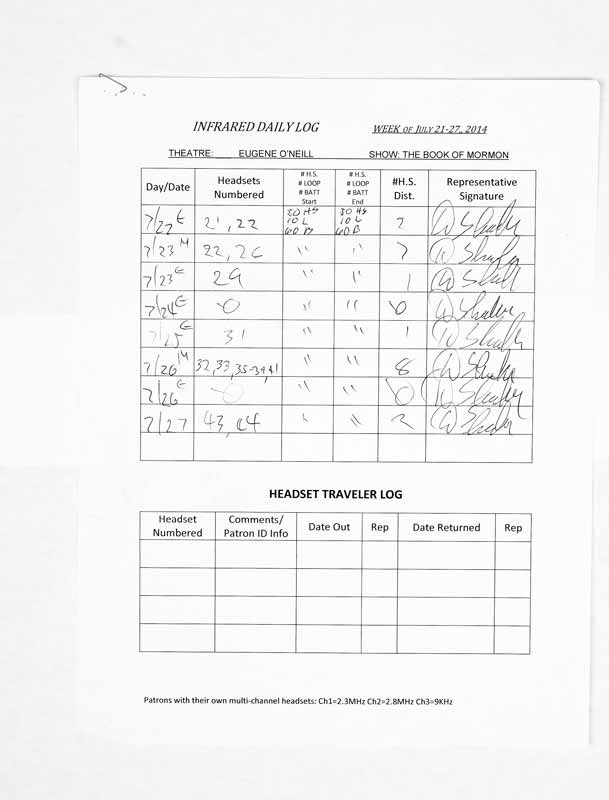 INFRARED DAILY LOG WEEK OF JULY 21-27, 2014
THEATRE: EUGENE O'NEILL SHOW: THE BOOK OF MORMON
Day/Date Headsets Numbered # H.S. # LOOP # BATT Start # H.S. # LOOP # BATT End #H.S. Dist. Representative Signature
7/22 E 21, 22 80 HS 10 L 60 B 80 HS 10 L 60 B 2
7/23 M 22, 26 " "
7/23 E 29 " " 1
7/24 E 0 " " 0
7/25 E 31 " " 1
7/26 M 32, 33, 35-39, 41 " " 8
7/26 E 0 " " 0
7/27 43, 44 " " 2
HEADSET TRAVELER LOG
Headset Numbered Comments/ Patron ID Info Date Out Rep Date Returned Rep
Patrons with their own multi-channel headsets: Ch1=2.3MHz Ch2=2.8MHz Ch3=9KHz